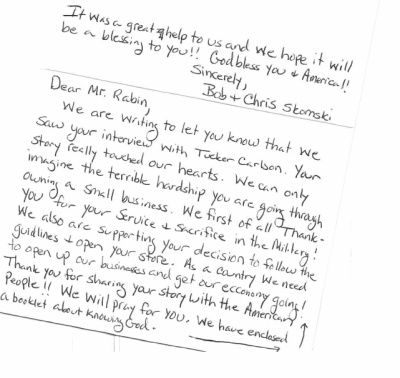 Dear Mr. Rabin,
We are writing to let you know that we
saw your interview with Tucker Carlson. Your
story really touched our hearts. We can only
imagine the terrible hardship you are going through
owning a small business. We first of all Thank-
you for your Service & Sacrifice in the Military!
We also are supporting your decision to follow the
guidlines & open your store. As a country we need
to open up our businesses and get our ecconomy going!
Thank you for sharing your story with the American
People!! We will pray for you. We have enclosed
a booklet about knowing God.
It was a great help to us and we hope it will
be a blessing to you!! God bless you & America!!
Sincerely,
Bob & Chris Skomski